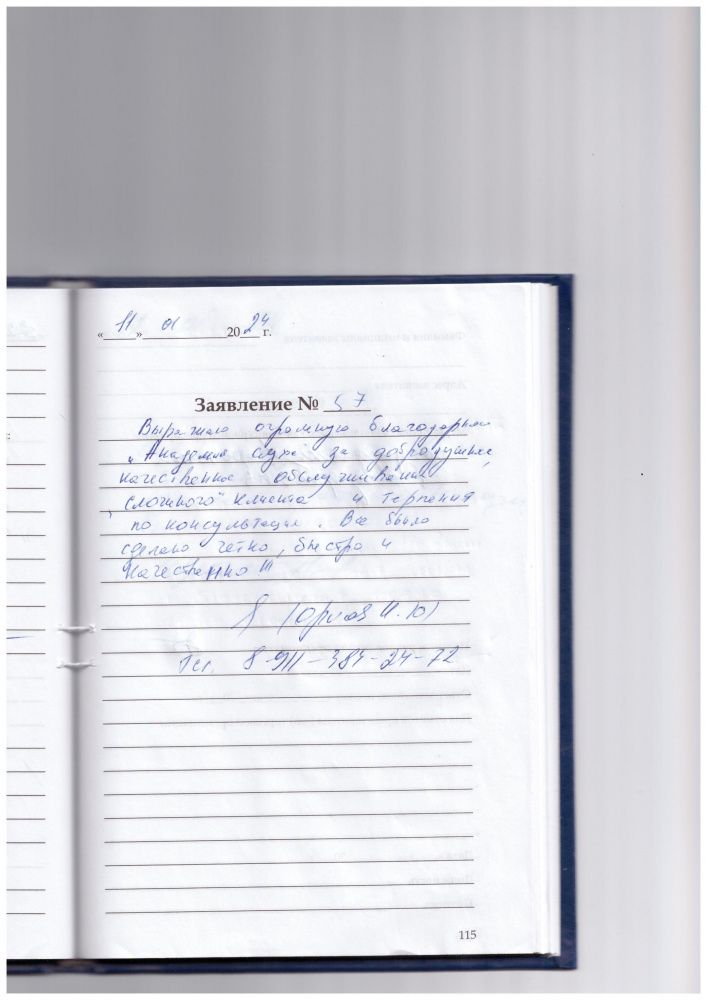 « 11 » 01 2024 г.
Заявление № 57
Выражаю огромную благодарность
„Академия слуха" за добродушное,
качественное обслуживание
„сложного" клиента и терпения
по консультации. Все было
сделано четко, быстро и
качественно !!!
Тел. 8-911-384-24-72
115